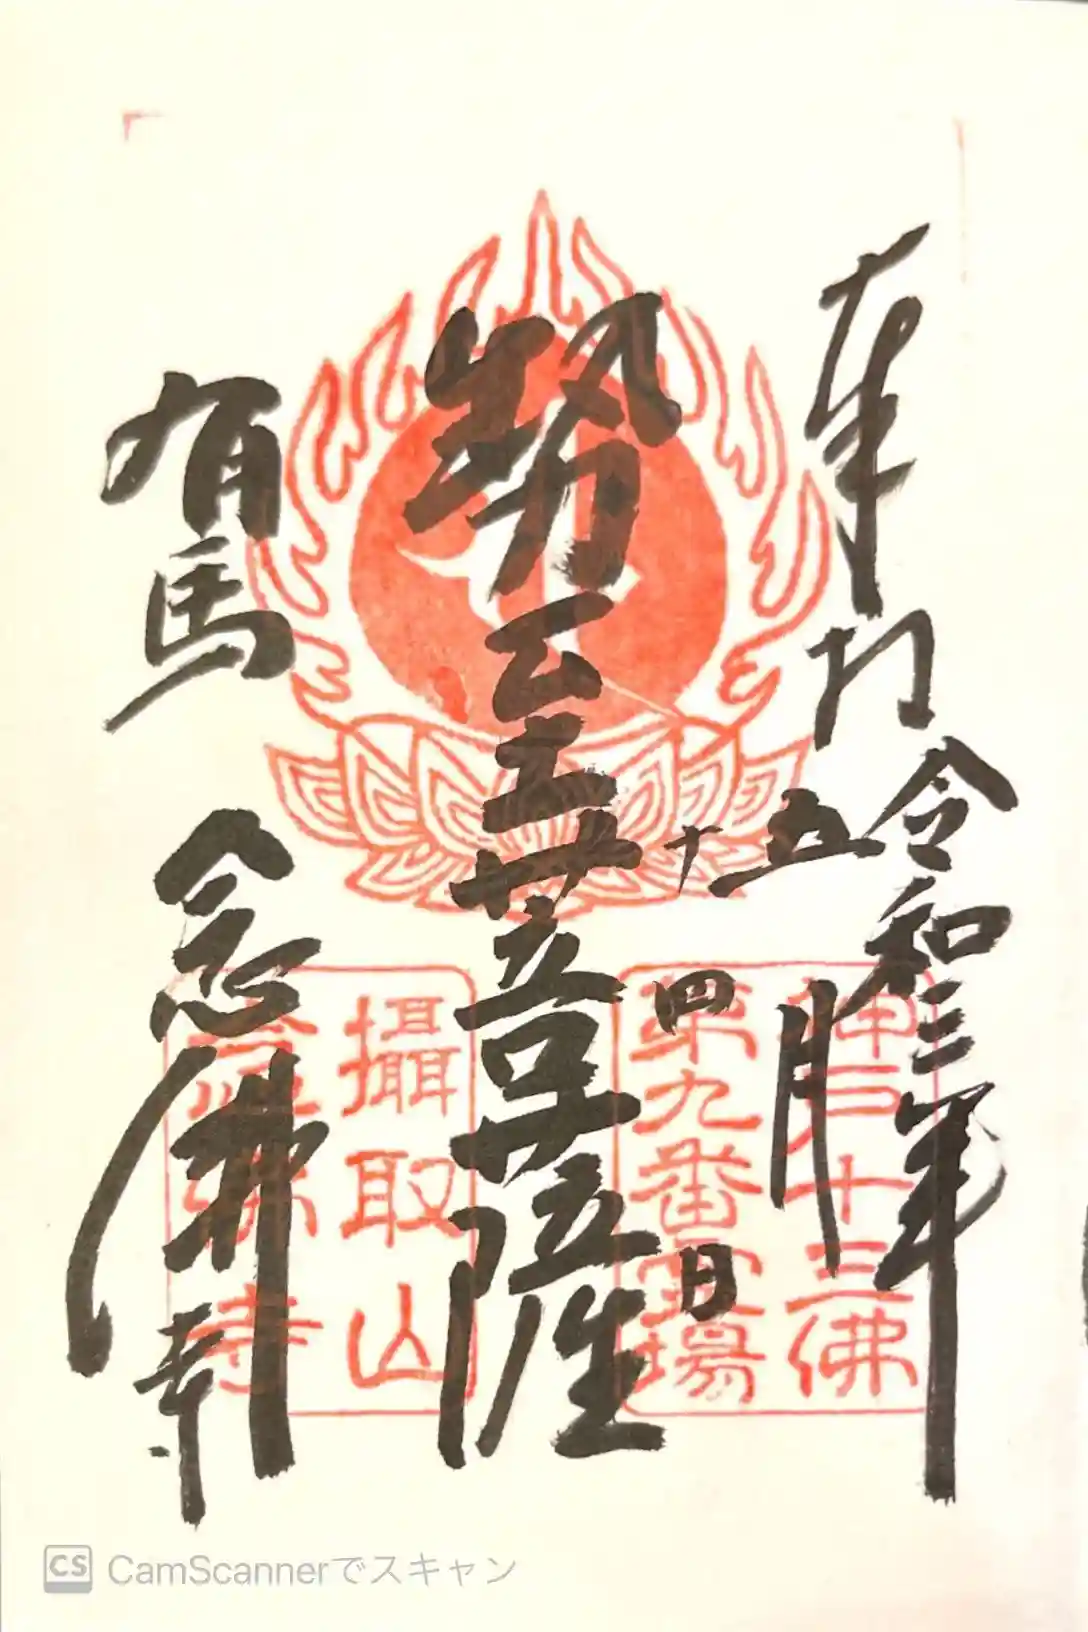 奉拝
令和三年
五月
十四日
勢至菩薩
有馬
念佛寺
神戸十三佛
第九番霊場
攝取山
念佛寺
CamScannerでスキャン